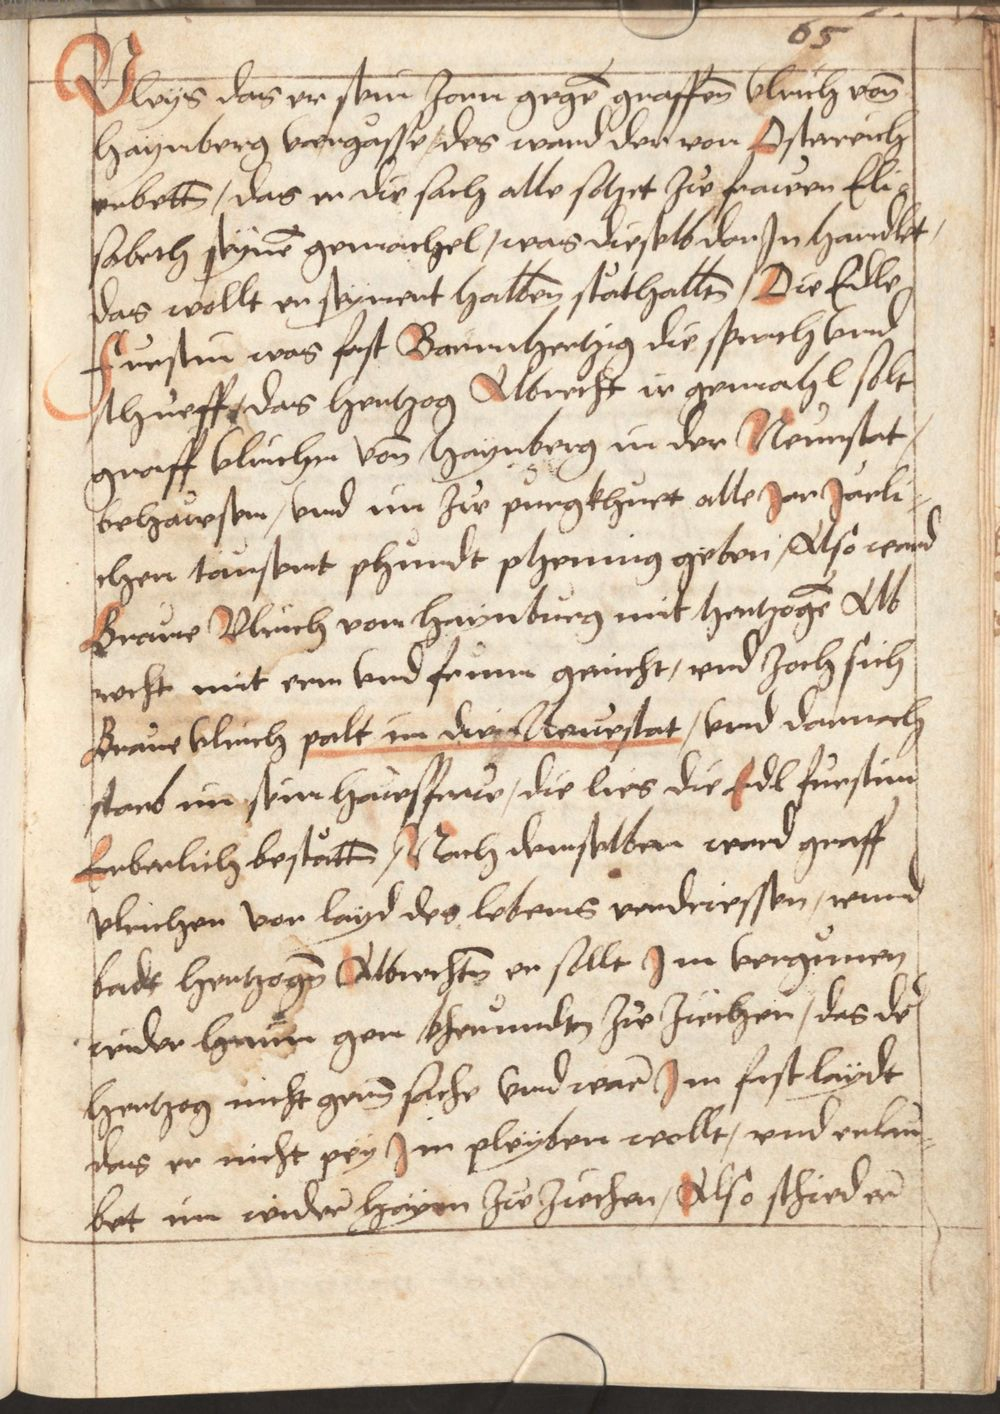 65
Vleys das er sein zorn gegē graffen̄ Vlrich von̄
Haynberg vergässe / des ward der von Osterreich
erbettn̄ / das er die sach alle setzet zw frawen Eli=
sabeth seynē gemachel / was dieselb dar Jn handlet /
das wollt er seynent halbenn statt halltn̄ / Die Edle
Furstin was fast Barmhertzig die sprach vnd
schueff / das hertzog Albrecht ir gemahl solt
graff Vlrichen von̄ Haynberg in der Neunstat /
behawsen / vnd im zw purgkhuet alle Jar Järli=
chen tausent phundt phening geben / Also ward
Grave Vlrich von Haynburg mit hertzogē Alb
recht mit ern vnd frumn gericht / vnd zoch sich
Grave Vlrich palt in die Newestat / vnd darnach
starb im sein hawsfraw / die lies die Edl furstin
Erberlich bestättn̄ / Nach demselben ward graff
Vlrichen vor layd des lebens verdriessen / vnnd
badt hertzogn̄ Albrechtn̄ er sollt Jm vergunnen
wider haim gen khernndtn zw ziechen / das dē
hertzog nicht gern̄ sache vnd warē Jm fast laydt
das er nicht pey Jm pleyben wollt / vnd erlau=
bet im widerē haym zw ziechen / Also schied erē